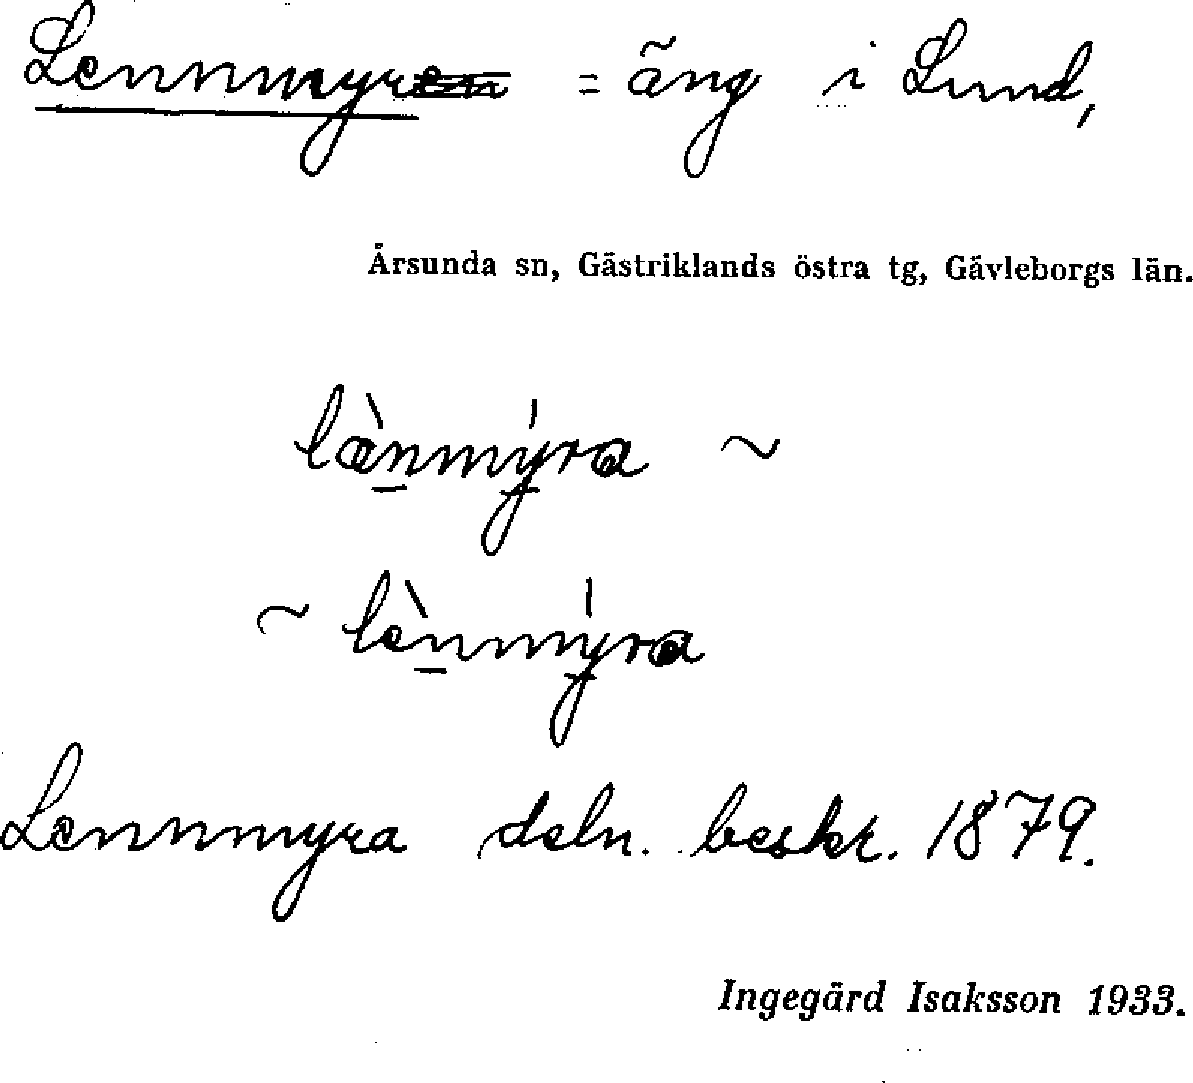 Lennmyren = äng i Lund,
Årsunda sn, Gästriklands östra tg, Gävleborgs län.
læ̀n̲mý̱ra ~
~ lèn̲mý̱ra
Lennmyra deln. beskr. 1879.
Ingegärd Isaksson 1933.